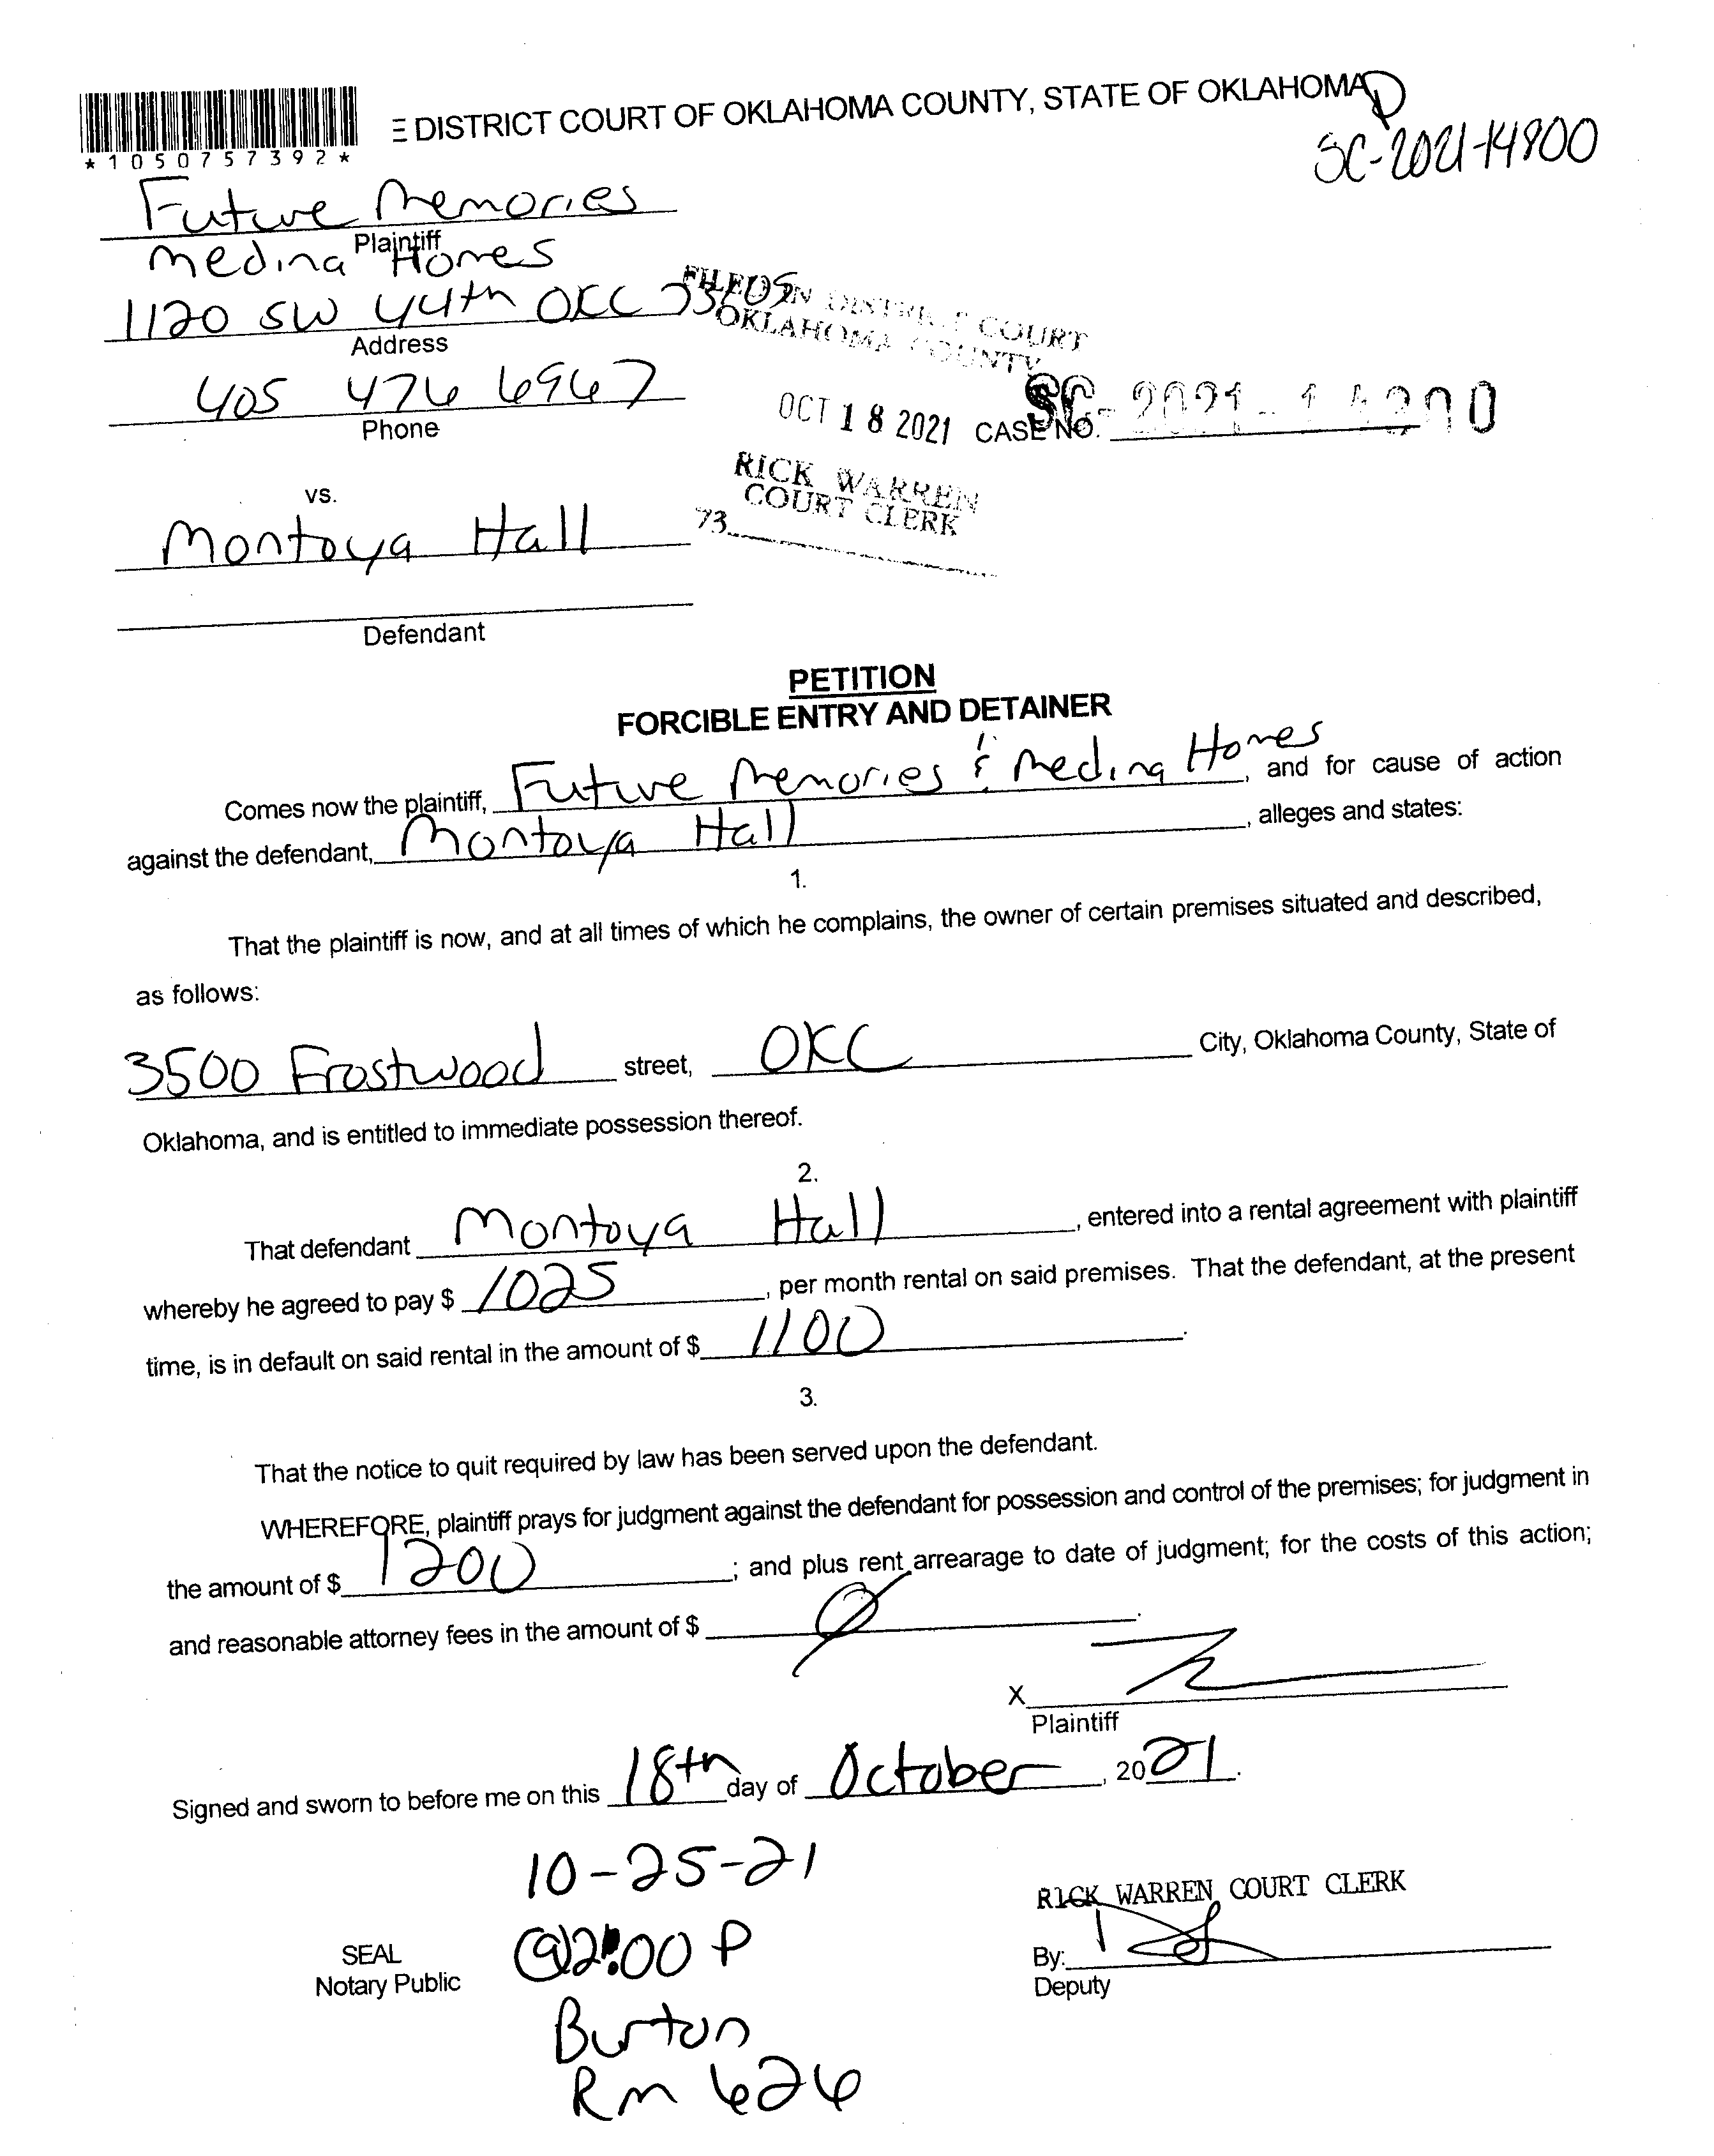 E DISTRICT COURT OF OKLAHOMA COUNTY, STATE OF OKLAHOMA
SC-2021-14800
*1050757392*
Future Memories
Plaintiff
Medina Homes
1120 SW 44th OKC
Address
405 476 6967
Phone
FILED IN DISTRICT COURT
OKLAHOMA COUNTY
OCT 18 2021 CASE NO. SC-2021-
RICK WARREN
COURT CLERK
73
vs.
Montoya Hall
Defendant
PETITION
FORCIBLE ENTRY AND DETAINER
Comes now the plaintiff, Future Memories & Medina Homes, and for cause of action
against the defendant, Montoya Hall, alleges and states:
1.
That the plaintiff is now, and at all times of which he complains, the owner of certain premises situated and described,
as follows:
3500 Frostwood street, OKC City, Oklahoma County, State of
Oklahoma, and is entitled to immediate possession thereof.
2.
That defendant Montoya Hall, entered into a rental agreement with plaintiff
whereby he agreed to pay $ 1025, per month rental on said premises. That the defendant, at the present
time, is in default on said rental in the amount of $ 1100.
3.
That the notice to quit required by law has been served upon the defendant.
WHEREFORE, plaintiff prays for judgment against the defendant for possession and control of the premises; for judgment in
the amount of $ 1200; and plus rent arrearage to date of judgment; for the costs of this action;
and reasonable attorney fees in the amount of $ Ø.
X
Plaintiff
Signed and sworn to before me on this 18th day of October, 2021.
10-25-21
@2:00 P
Burton
Rm 626
SEAL
Notary Public
RICK WARREN COURT CLERK
By:
Deputy